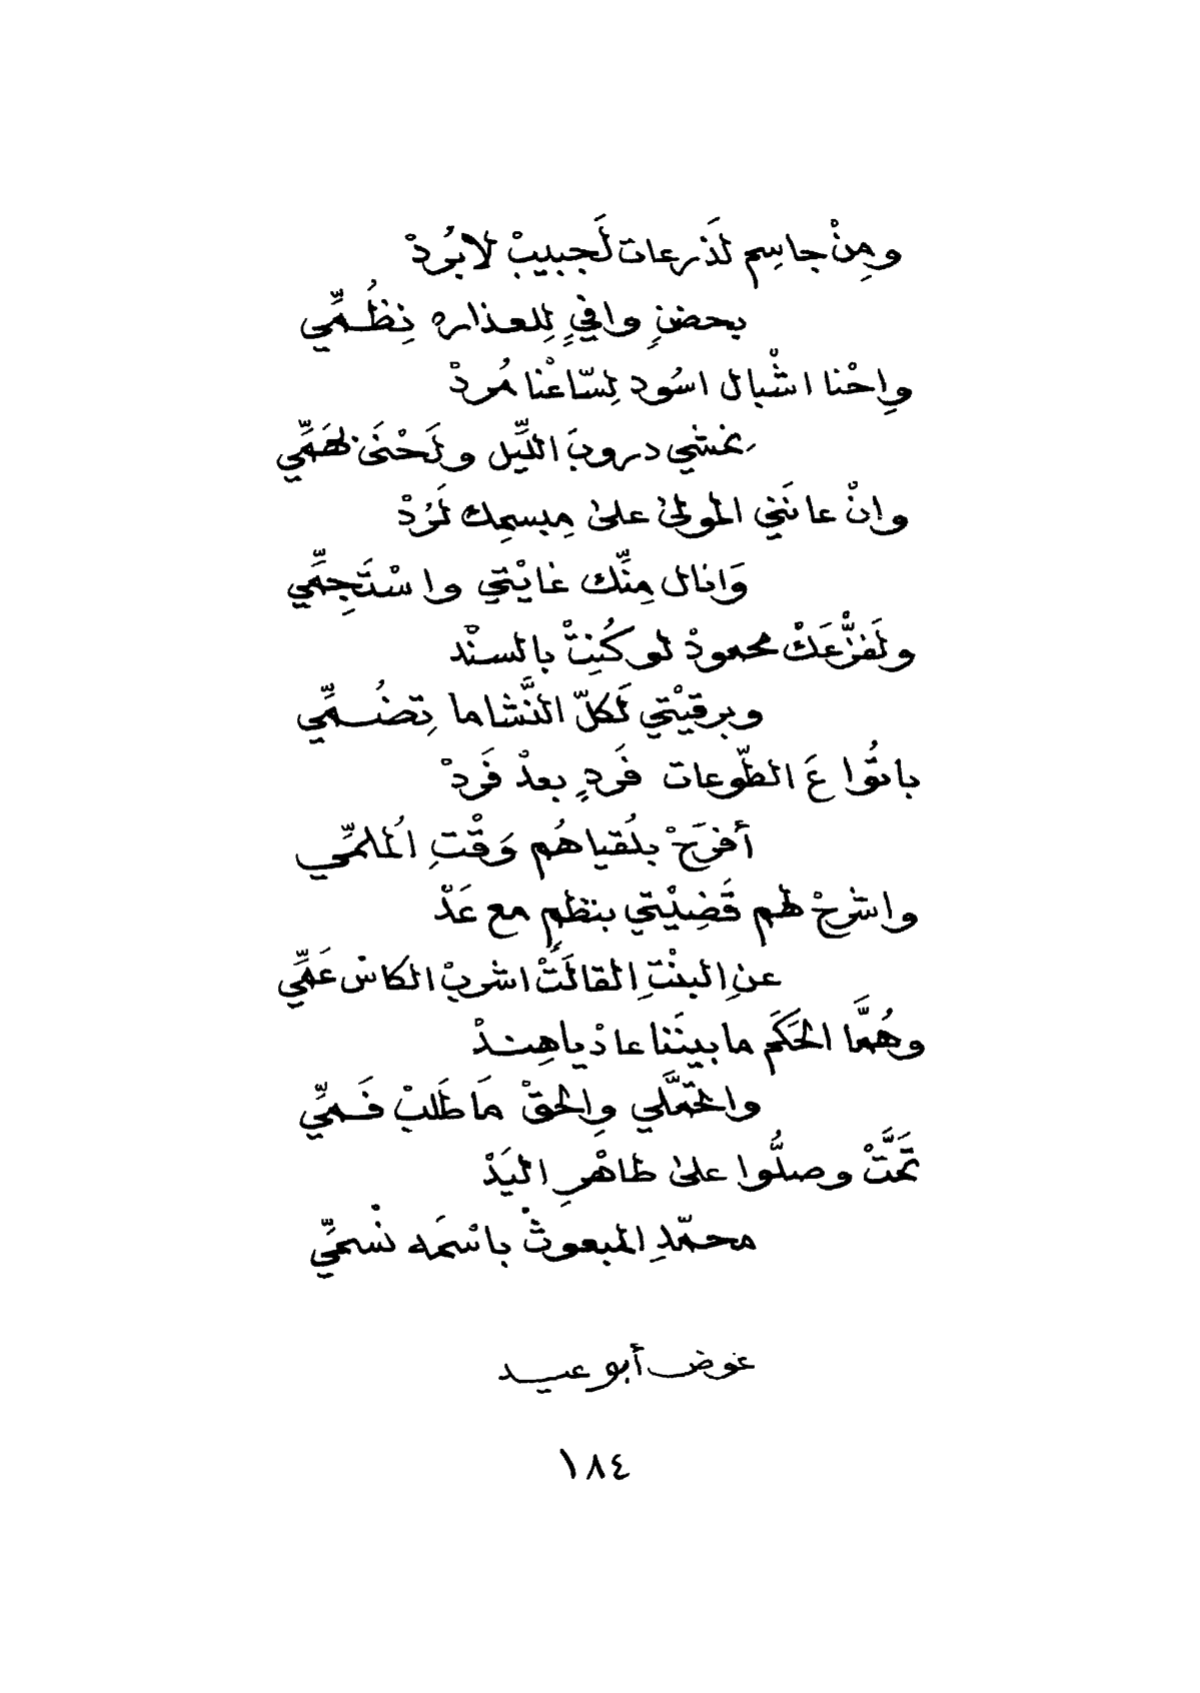 ومِنْ جاسِم لَذرعات لَجبيبْ لابُردْ
بحضنٍ وافيٍ لِلعذاره نِظُمِّي
وِاحْنا اشْبال اسُود لِسّاعْنا مُردْ
نمشي دروبَ اللّيل ولَحْنَى بهَمِّي
وانْ عانَني المولىٰ علىٰ مِبسمِك لَرُدْ
وَانال مِنِّك غايْتي واسْتَجِمِّي
ولَفزّْعَكْ محمودْ لو كُنِتْ بالسنْد
وبرقيْتي لَكلّ النَّشاما تِضُمِّي
باتُوا عَ الطّوعات فَردٍ بعدْ فَردْ
أفرَحْ بلُقياهُم وَقْتِ الُملمِّي
واشرحْ لهم قَضِيْتي بنظمٍ مع عَدْ
عنِ البنْتِ القالَتْ اشربْ الكاس عَمِّي
وهُمَّا الحَكَم ما بينَنا عادْ ياهِندْ
والمحَّلي والحقْ مَا طَلبْ فَمِّي
تمَّتْ وصلُّوا علىٰ طاهْرِ اليَدْ
محمّدِ المبعوثْ باسْمَه نْسمِّي
عوض أبو عيد
١٨٤